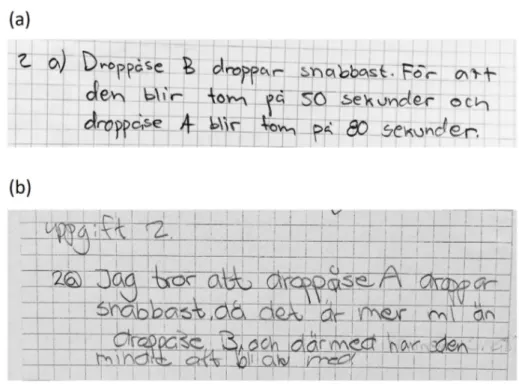 (a)
2 a) Droppåse B droppar snabbast. För att
den blir tom på 50 sekunder och
droppåse A blir tom på 80 sekunder.
(b)
uppgift 2.
2a) Jag tror att droppåse A droppar
snabbast, då det är mer ml än
droppåse B, och därmed har den
mindre att bli av med